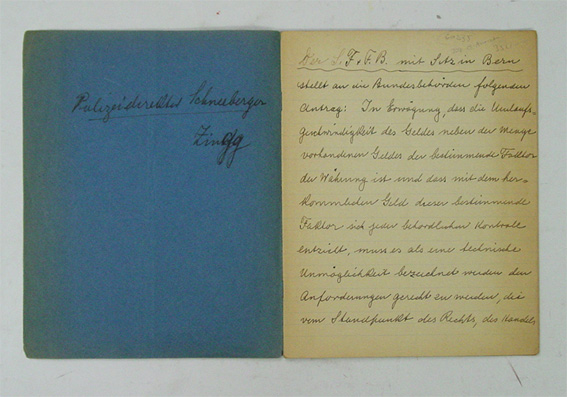 Polizeidirektor Schneeberger
Zingg
Der S. F. F. B. mit Sitz in Bern
stellt an die Bundesbehörden folgenden
Antrag: In Erwägung, dass die Umlaufs=
geschwindigkeit des Geldes neben der Menge
vorhandenen Geldes der bestimmende Faktor
der Währung ist und dass mit dem her=
kömmlichen Geld dieser bestimmende
Faktor sich jeder behördlichen Kontrolle
entzieht, muss es als eine technische
Unmöglichkeit bezeichnet werden den
Anforderungen gerecht zu werden, die
vom Standpunkt des Rechts, des Handels